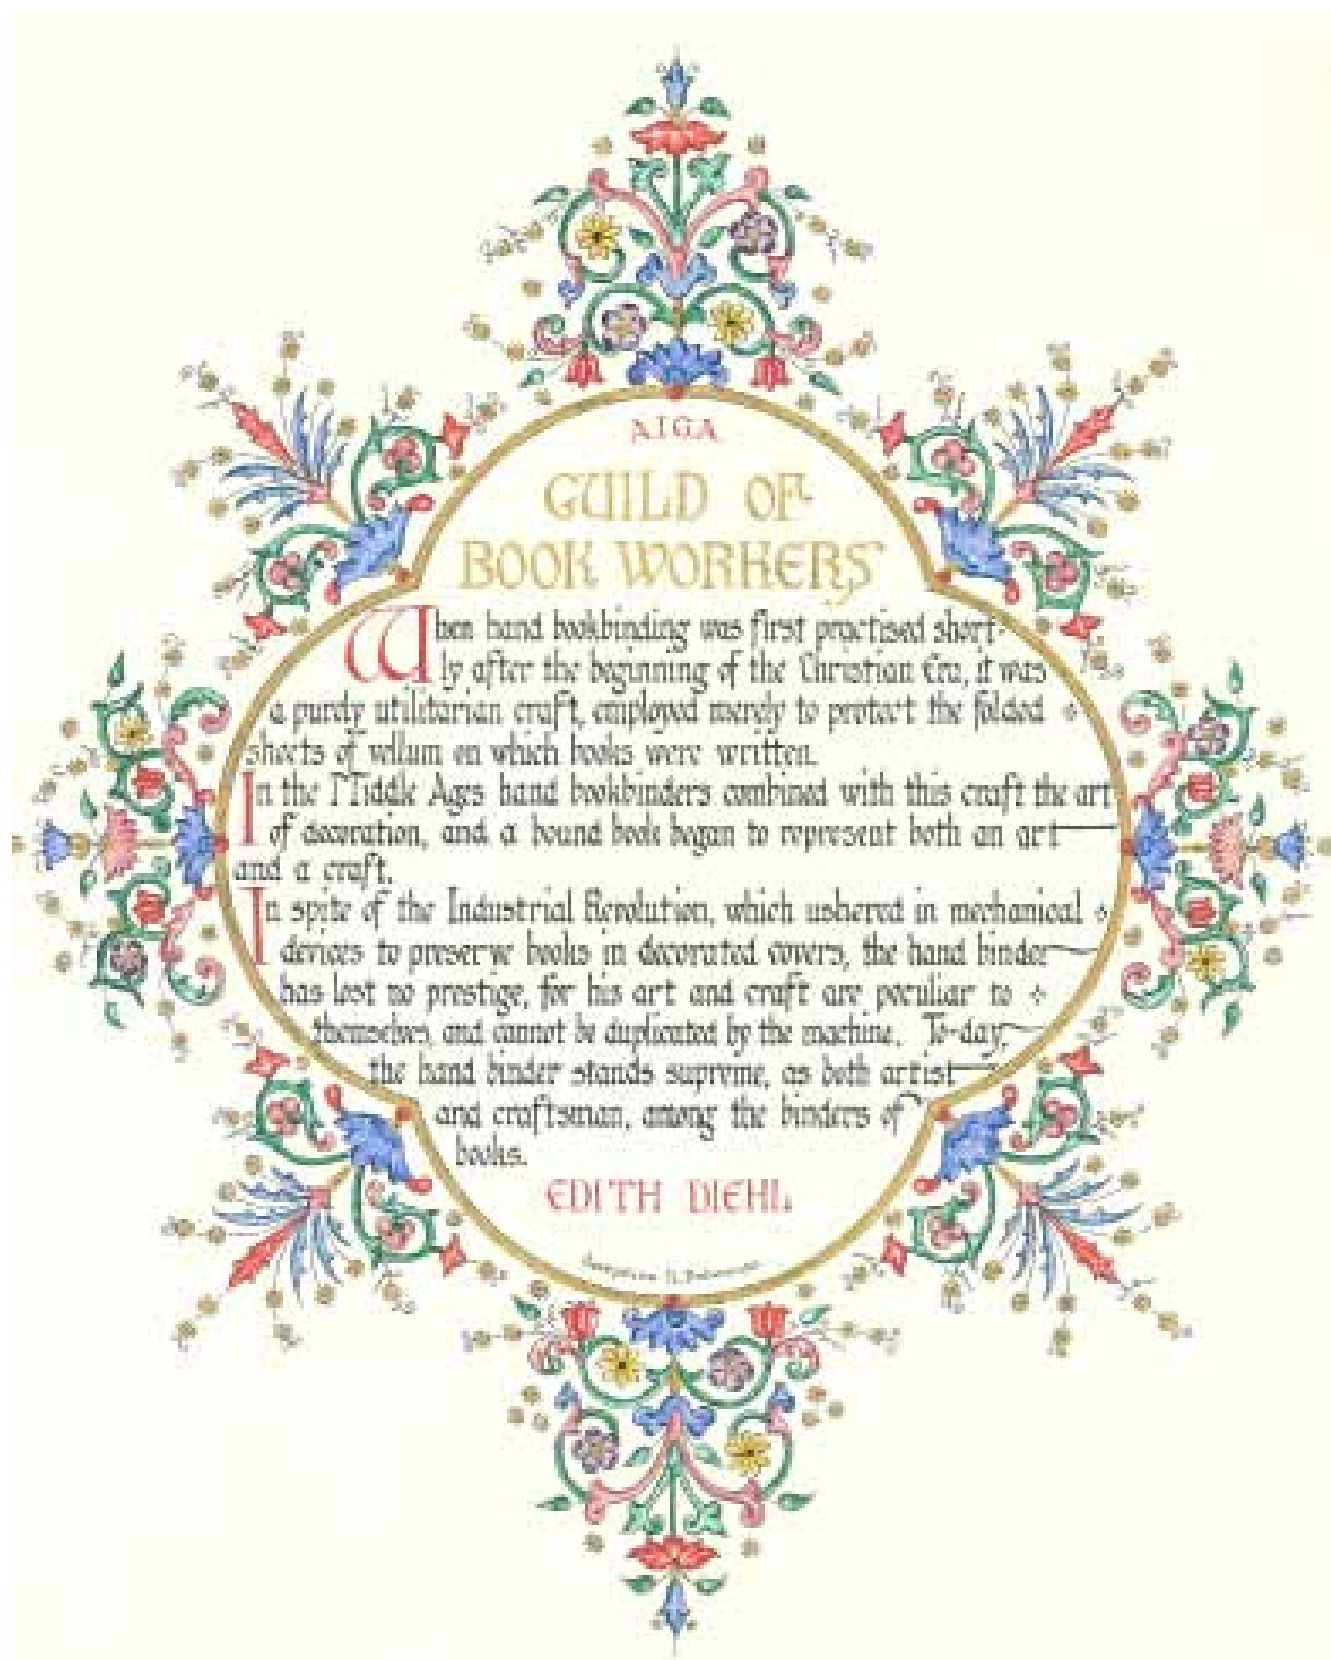 AIGA
GUILD OF
BOOK WORKERS
When hand bookbinding was first practised short-
ly after the beginning of the Christian Era, it was
a purely utilitarian craft, employed merely to protect the folded
sheets of vellum on which books were written.
In the Middle Ages hand bookbinders combined with this craft the art
of decoration, and a bound book began to represent both an art
and a craft.
In spite of the Industrial Revolution, which ushered in mechanical
devices to preserve books in decorated covers, the hand binder
has lost no prestige, for his art and craft are peculiar to
themselves, and cannot be duplicated by the machine. To-day,
the hand binder stands supreme, as both artist
and craftsman, among the binders of
books.
EDITH DIEHL